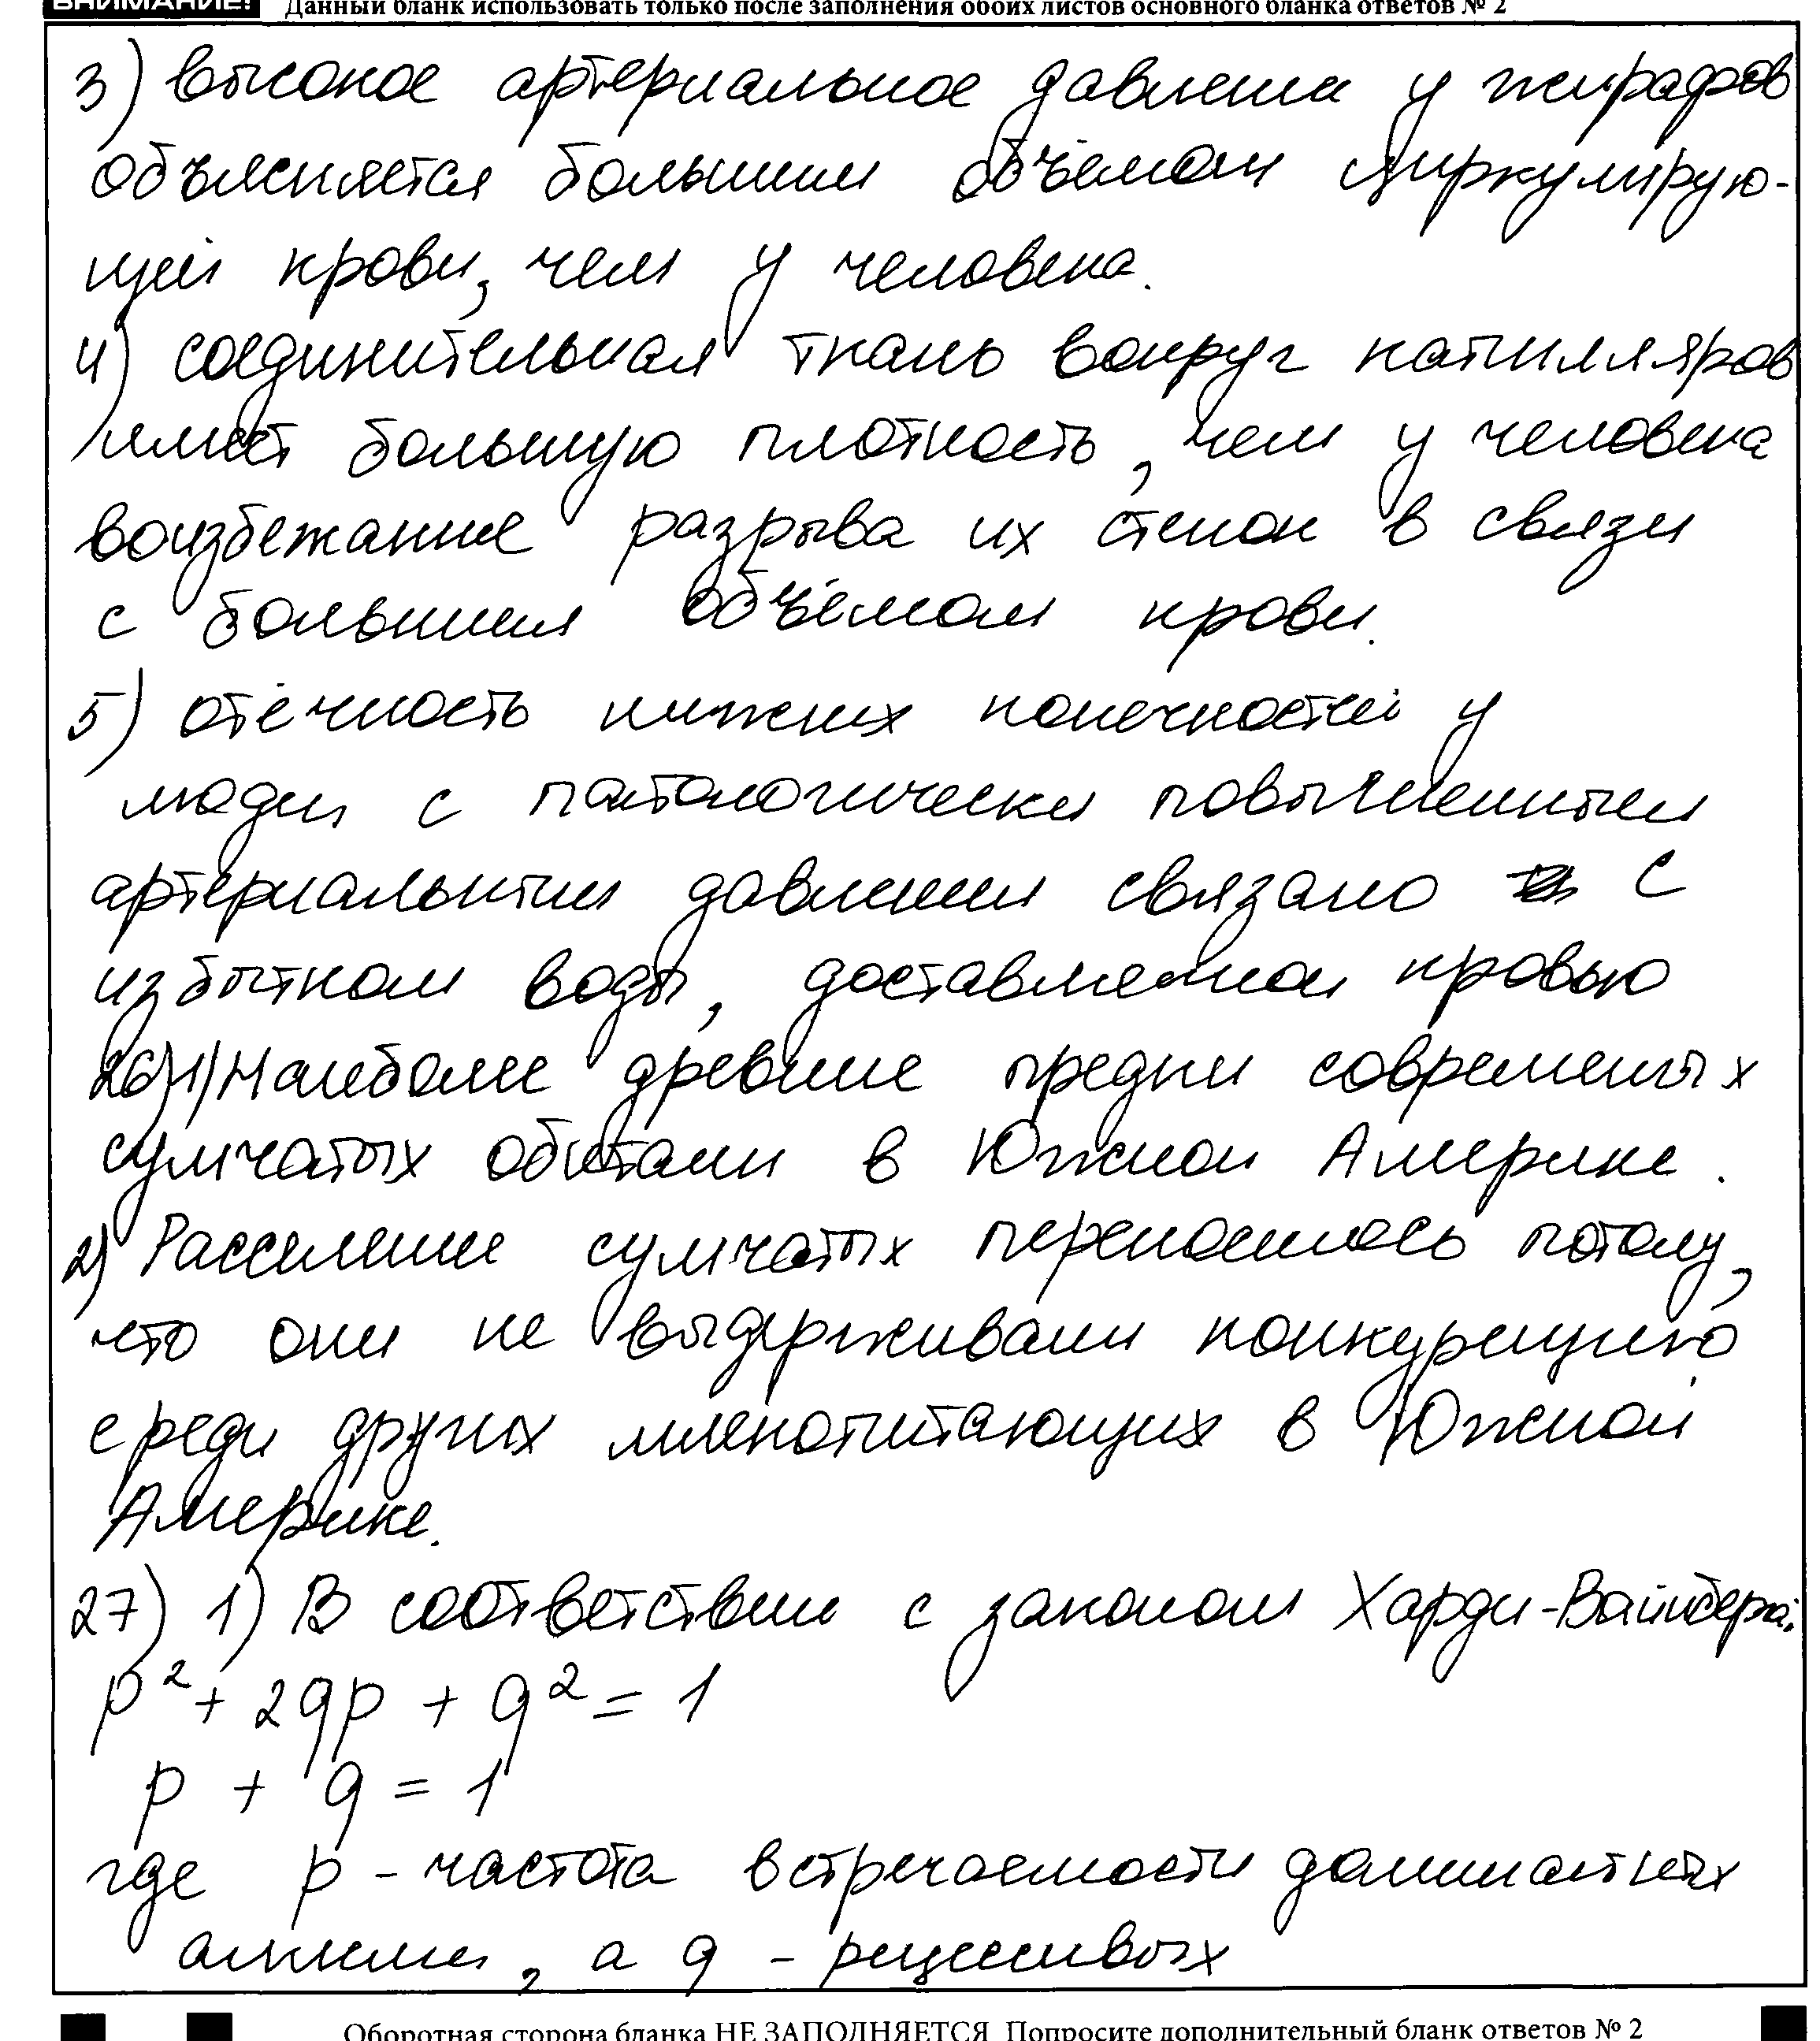 ВНИМАНИЕ! Данный бланк использовать только после заполнения обоих листов основного бланка ответов № 2
3) высокое артериальное давление у жирафов
объясняется большим объёмом циркулирую-
щей крови, чем у человека.
4) соединительная ткань вокруг капилляров
имеет большую плотность, чем у человека
воизбежание разрыва их стенок в связи
с большим объёмом крови.
5) отёчность нижних конечностей у
людей с патологически повышенным
артериальным давлением связано с
избытком воды, доставленной кровью
26) 1) Наиболее древние предки современых
сумчатых обитали в Южной Америке.
2) Расселение сумчатых переносилось потому,
что они не выдерживали конкуренцию
среди других млекопитающих в Южной
Америке.
27) 1) В соответствии с законом Харди-Вайнберга:
p² + 2qp + q² = 1
p + q = 1
где p - частота встречаемости доминантных
аллели, а q - рецессивых
Оборотная сторона бланка НЕ ЗАПОЛНЯЕТСЯ. Попросите дополнительный бланк ответов № 2